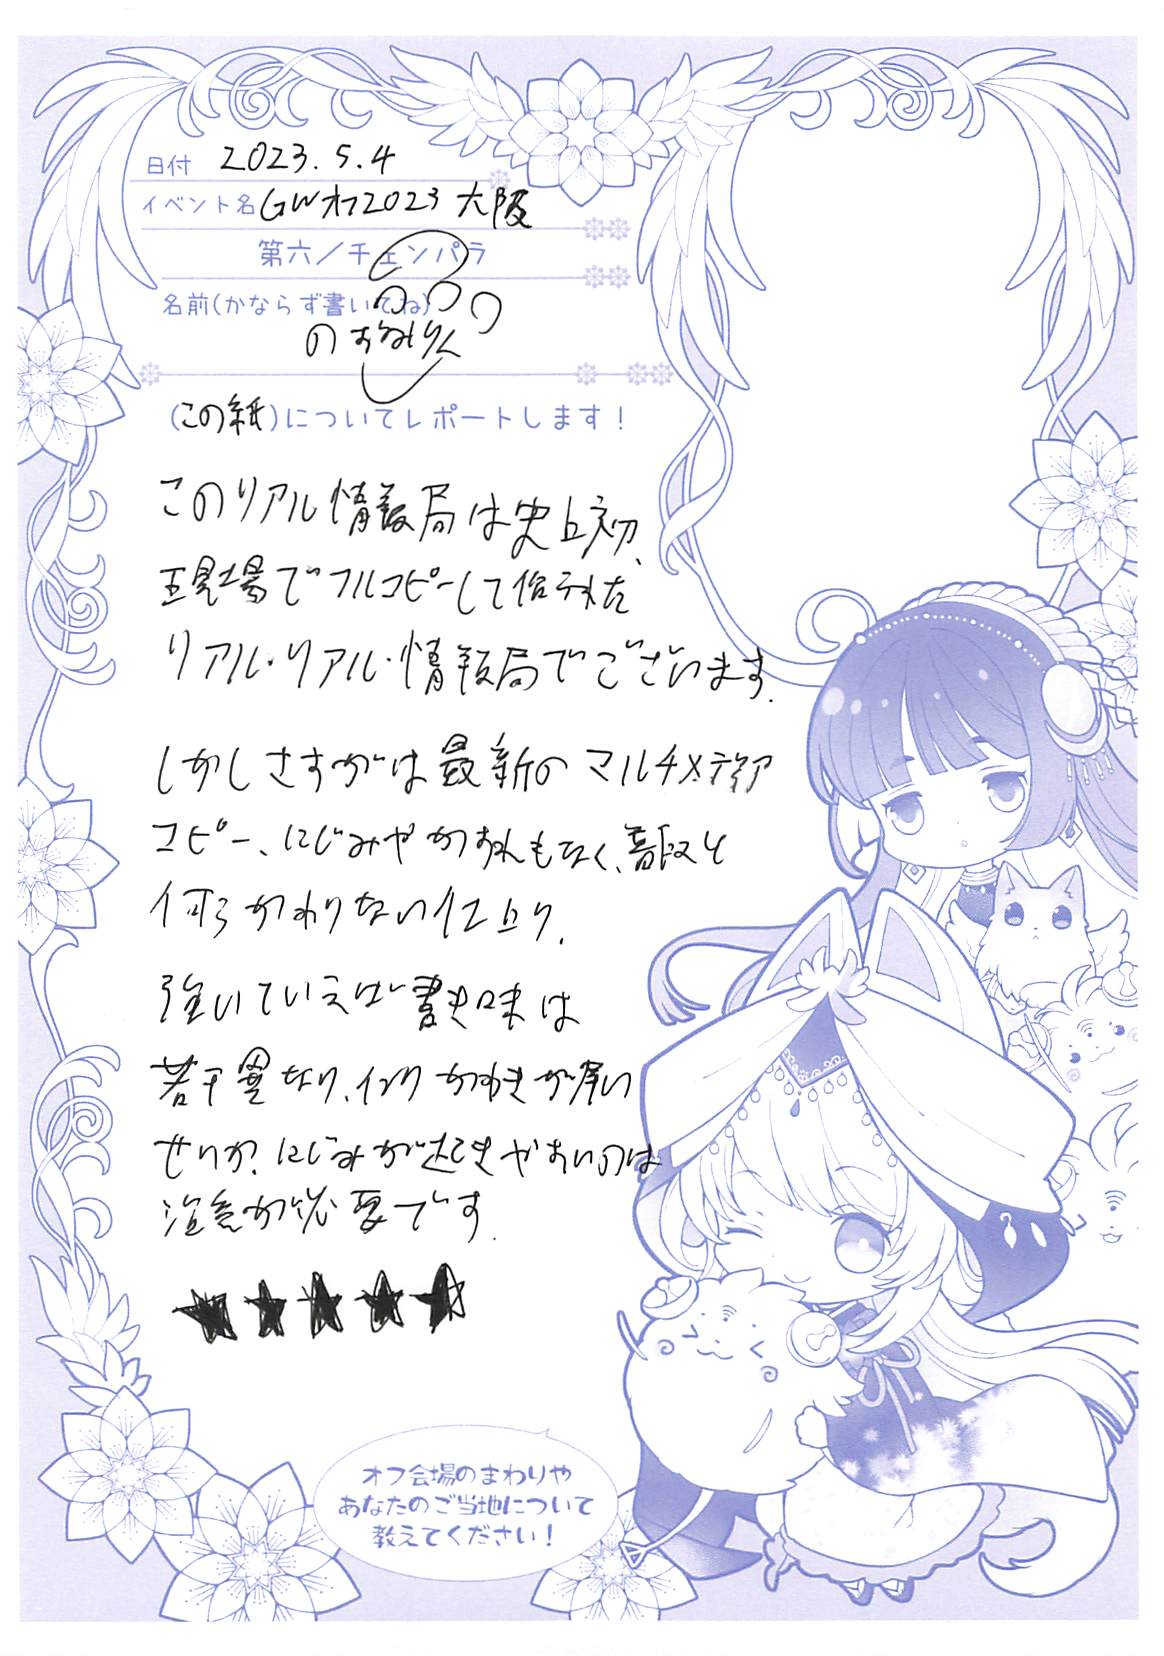 日付 2023.5.4
イベント名 GWオフ2023 大阪
第六/チェンパラ
名前(かならず書いてね)
(この紙)についてレポートします!
このリアル情報局は史上初、
現場でフルコピーして作られた
リアル・リアル・情報局でございます.
しかしさすがは最新のマルチメディア
コピー、にじみやかすれもなく、普段と
何らかわりない仕上り.
強いていえば書き味は
若干異なり、インクかわきが遅い
せいか、にじみが起きやすいのは
注意が必要です.
★★★★
オフ会場のまわりや
あなたのご当地について
教えてください!